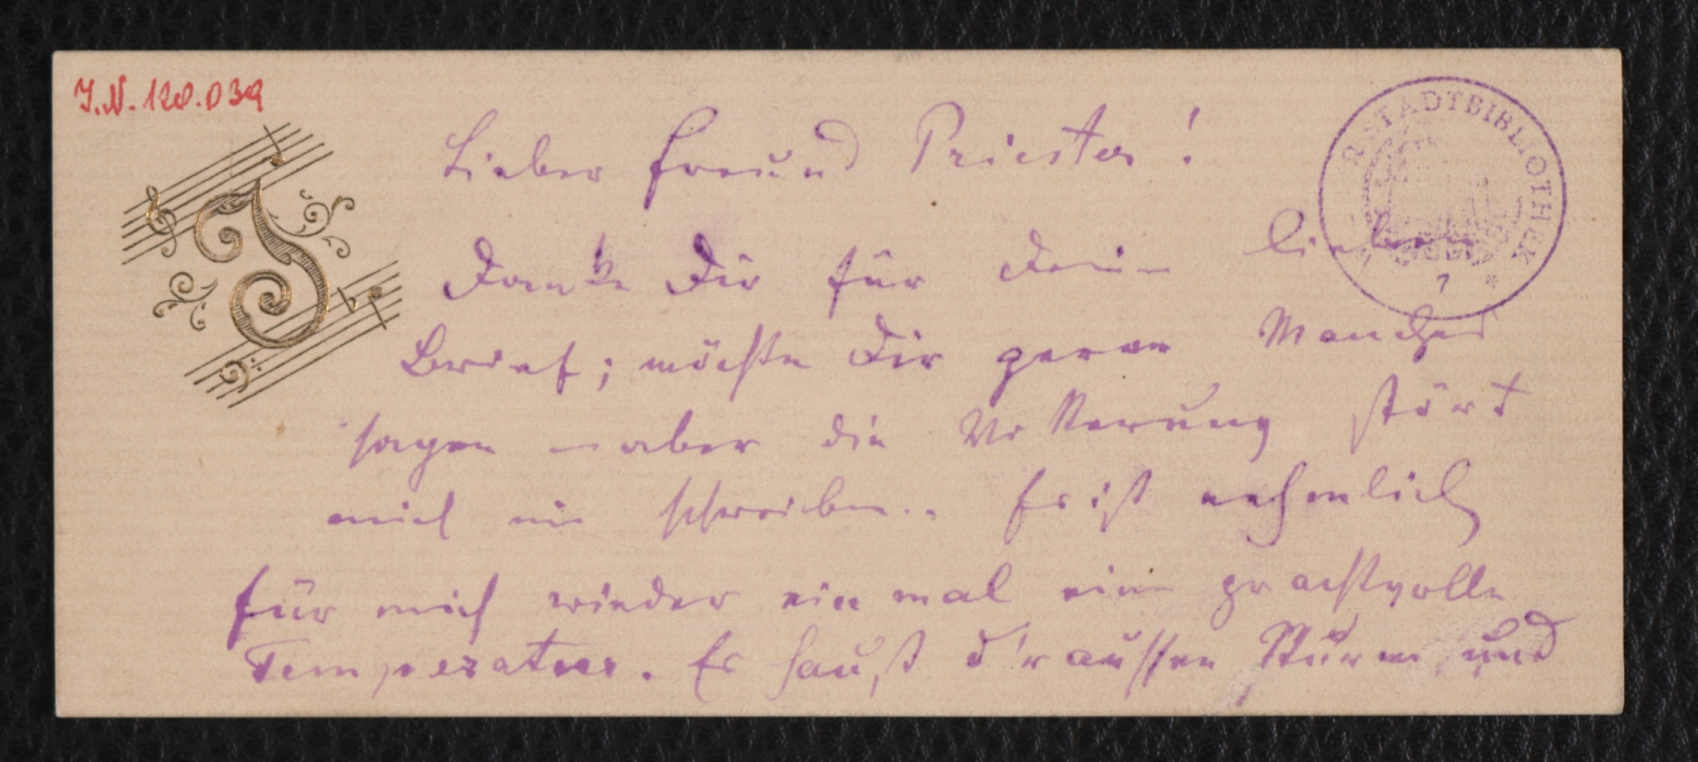 J.N. 120.039
Lieber Freund Priester!
STADTBIBLIOTHEK
7
Danke Dir für Dein lieben
Brief; möchte Dir gerne Manches
sagen – aber die Witterung stört
mich im schreiben.. Es ist nehmlich
für mich wieder ein mal eine prachtvolle
Temperatur. Es saust d'raussen Sturm und